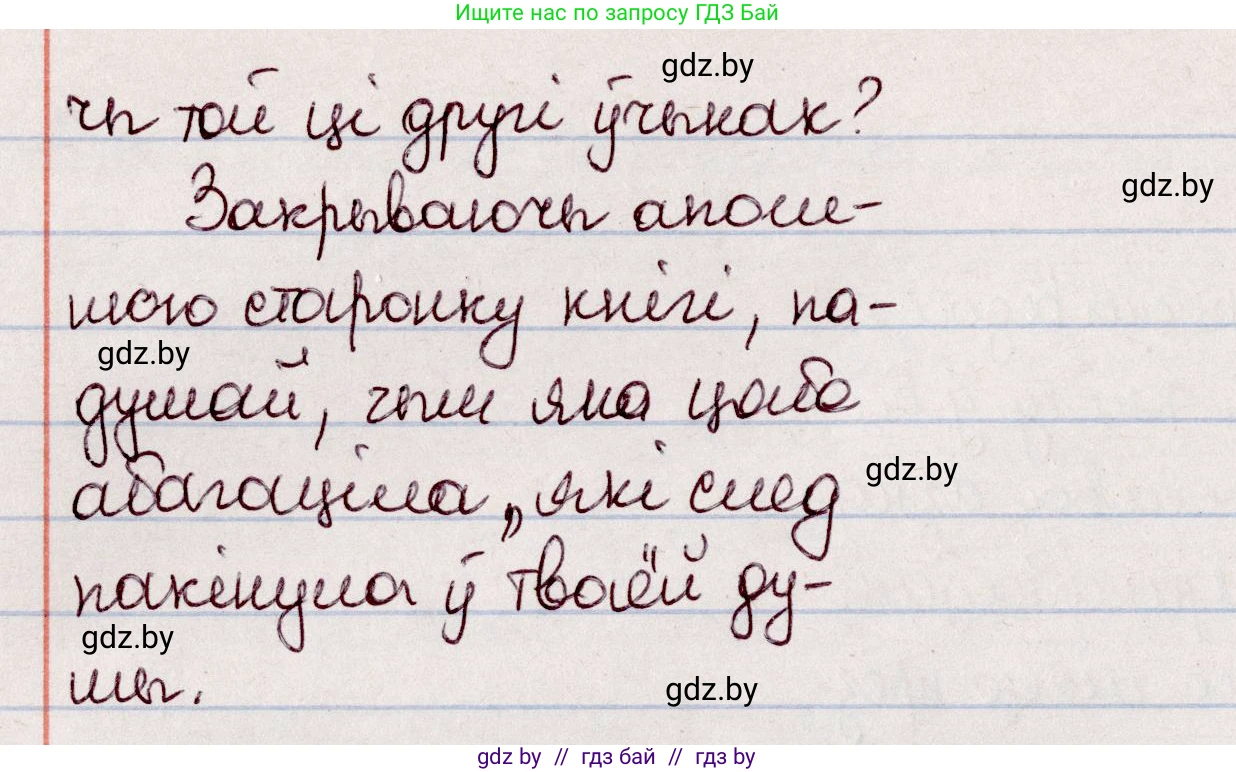 Ищите нас по запросу ГДЗ Бай
gdz.by
чы той ці другі ўчынак?
gdz.by
Закрываючы апош-
нюю старонку кнігі, па-
gdz.by
думай, чым яна цябе
gdz.by
абагаціла, які след
пакінула ў тваёй ду-
gdz.by
шы.
gdz.by
gdz by // гдз бай // гдз by